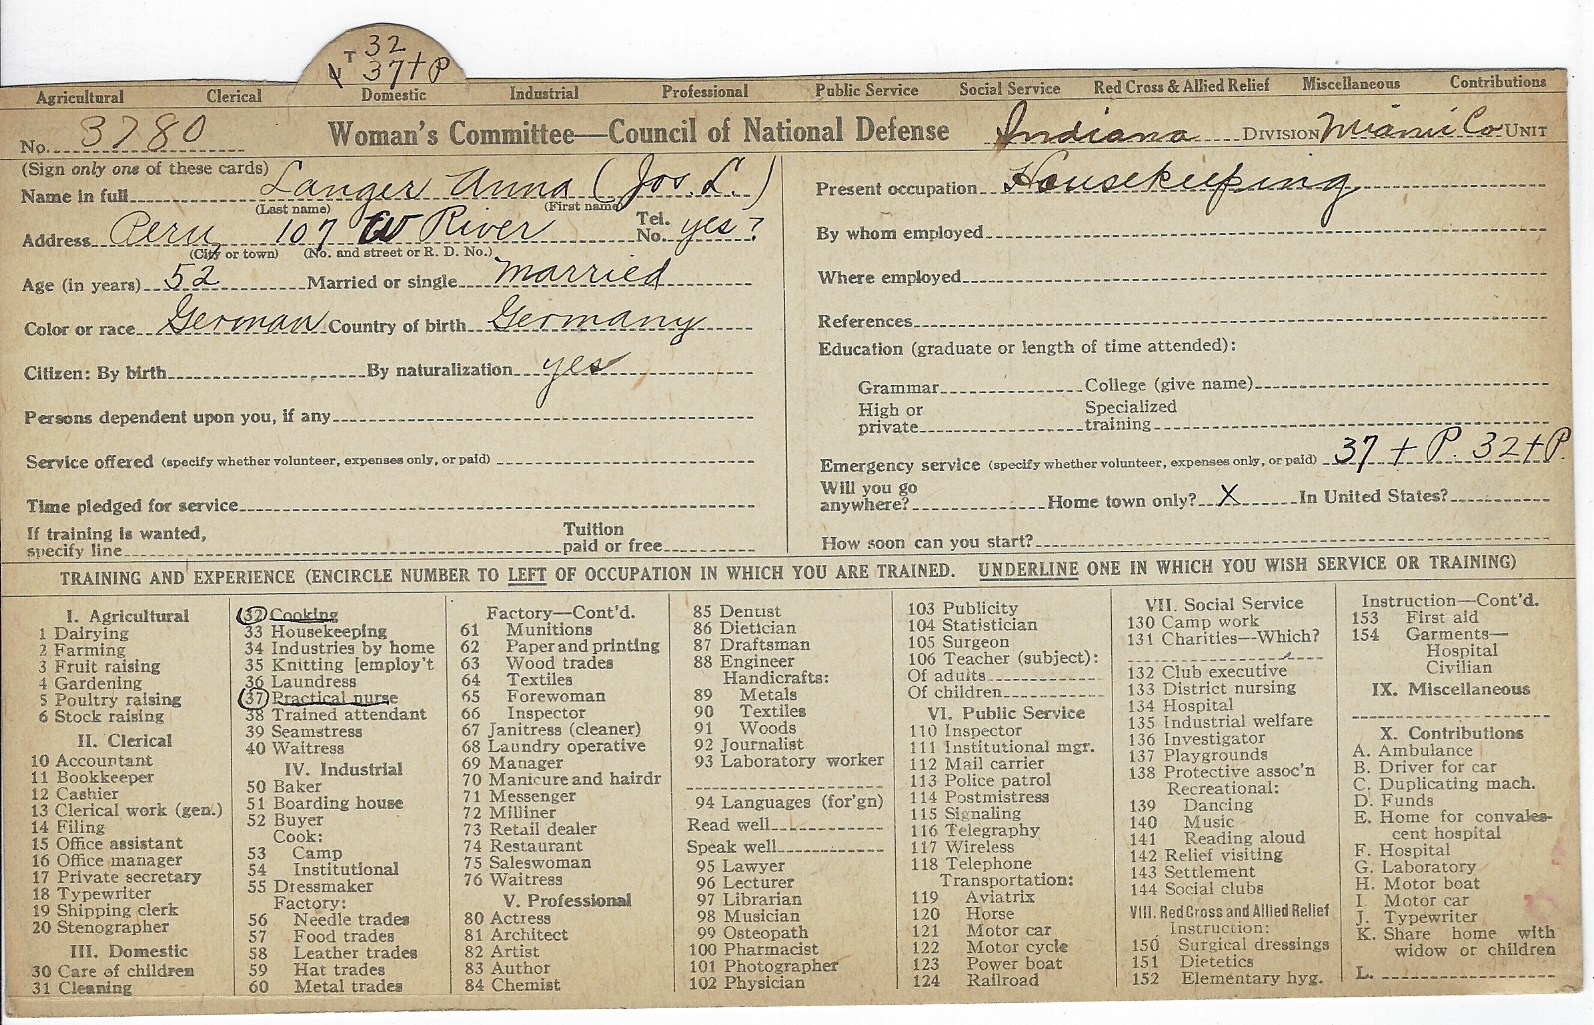 T 32
U 37 + P
Agricultural Clerical Domestic Industrial Professional Public Service Social Service Red Cross & Allied Relief Miscellaneous Contributions
No. 3780 Woman's Committee—Council of National Defense Indiana DIVISION Miami Co UNIT
(Sign only one of these cards)
Name in full Langer Anna (Jos. L.)
(Last name) (First name)
Address Peru 107 W River Tel. No. yes?
(City or town) (No. and street or R. D. No.)
Age (in years) 52 Married or single married
Color or race German Country of birth Germany
Citizen: By birth By naturalization yes
Persons dependent upon you, if any
Service offered (specify whether volunteer, expenses only, or paid)
Time pledged for service
If training is wanted, specify line Tuition paid or free
Present occupation Housekeeping
By whom employed
Where employed
References
Education (graduate or length of time attended):
Grammar College (give name)
High or private Specialized training
Emergency service (specify whether volunteer, expenses only, or paid) 37 + P. 32 + P.
Will you go anywhere? Home town only? X In United States?
How soon can you start?
TRAINING AND EXPERIENCE (ENCIRCLE NUMBER TO LEFT OF OCCUPATION IN WHICH YOU ARE TRAINED. UNDERLINE ONE IN WHICH YOU WISH SERVICE OR TRAINING)
I. Agricultural
1 Dairying
2 Farming
3 Fruit raising
4 Gardening
5 Poultry raising
6 Stock raising
II. Clerical
10 Accountant
11 Bookkeeper
12 Cashier
13 Clerical work (gen.)
14 Filing
15 Office assistant
16 Office manager
17 Private secretary
18 Typewriter
19 Shipping clerk
20 Stenographer
III. Domestic
30 Care of children
31 Cleaning
32 Cooking
33 Housekeeping
34 Industries by home
35 Knitting [employ't
36 Laundress
37 Practical nurse
38 Trained attendant
39 Seamstress
40 Waitress
IV. Industrial
50 Baker
51 Boarding house
52 Buyer
Cook:
53 Camp
54 Institutional
55 Dressmaker
Factory:
56 Needle trades
57 Food trades
58 Leather trades
59 Hat trades
60 Metal trades
Factory—Cont'd.
61 Munitions
62 Paper and printing
63 Wood trades
64 Textiles
65 Forewoman
66 Inspector
67 Janitress (cleaner)
68 Laundry operative
69 Manager
70 Manicure and hairdr
71 Messenger
72 Milliner
73 Retail dealer
74 Restaurant
75 Saleswoman
76 Waitress
V. Professional
80 Actress
81 Architect
82 Artist
83 Author
84 Chemist
85 Dentist
86 Dietician
87 Draftsman
88 Engineer
Handicrafts:
89 Metals
90 Textiles
91 Woods
92 Journalist
93 Laboratory worker
94 Languages (for'gn)
Read well
Speak well
95 Lawyer
96 Lecturer
97 Librarian
98 Musician
99 Osteopath
100 Pharmacist
101 Photographer
102 Physician
103 Publicity
104 Statistician
105 Surgeon
106 Teacher (subject):
Of adults
Of children
VI. Public Service
110 Inspector
111 Institutional mgr.
112 Mail carrier
113 Police patrol
114 Postmistress
115 Signaling
116 Telegraphy
117 Wireless
118 Telephone
Transportation:
119 Aviatrix
120 Horse
121 Motor car
122 Motor cycle
123 Power boat
124 Railroad
VII. Social Service
130 Camp work
131 Charities—Which?
132 Club executive
133 District nursing
134 Hospital
135 Industrial welfare
136 Investigator
137 Playgrounds
138 Protective assoc'n
Recreational:
139 Dancing
140 Music
141 Reading aloud
142 Relief visiting
143 Settlement
144 Social clubs
VIII. Red Cross and Allied Relief
Instruction:
150 Surgical dressings
151 Dietetics
152 Elementary hyg.
Instruction—Cont'd.
153 First aid
154 Garments—
Hospital
Civilian
IX. Miscellaneous
X. Contributions
A. Ambulance
B. Driver for car
C. Duplicating mach.
D. Funds
E. Home for convales-
cent hospital
F. Hospital
G. Laboratory
H. Motor boat
I Motor car
J. Typewriter
K. Share home with
widow or children
L.